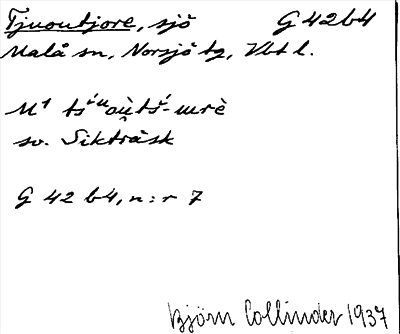 Tjuoutjore, sjö G 42 b4
Malå sn, Norsjö tg, Vbt l.
sv. Sikträsk
G 42 b4, n:r 7
Björn Collinder 1937